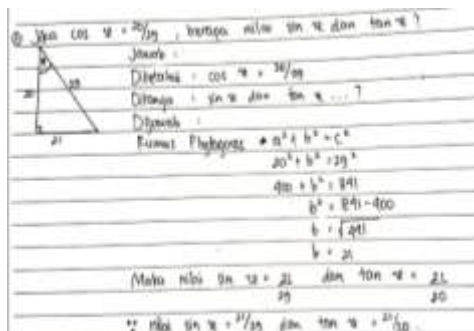 Jika cos α = 20/29, berapa nilai sin α dan tan α ?
Jawab :
Diketahui : cos α = 20/29
Ditanya : sin α dan tan α ... ?
Dijawab :
Rumus Phytagoras • a² + b² = c²
20² + b² = 29²
400 + b² = 841
b² = 841 - 400
b = √441
b = 21
Maka nilai sin α = 21/29 dan tan α = 21/20
∴ nilai sin α = 21/29 dan tan α = 21/20
α
20
29
21